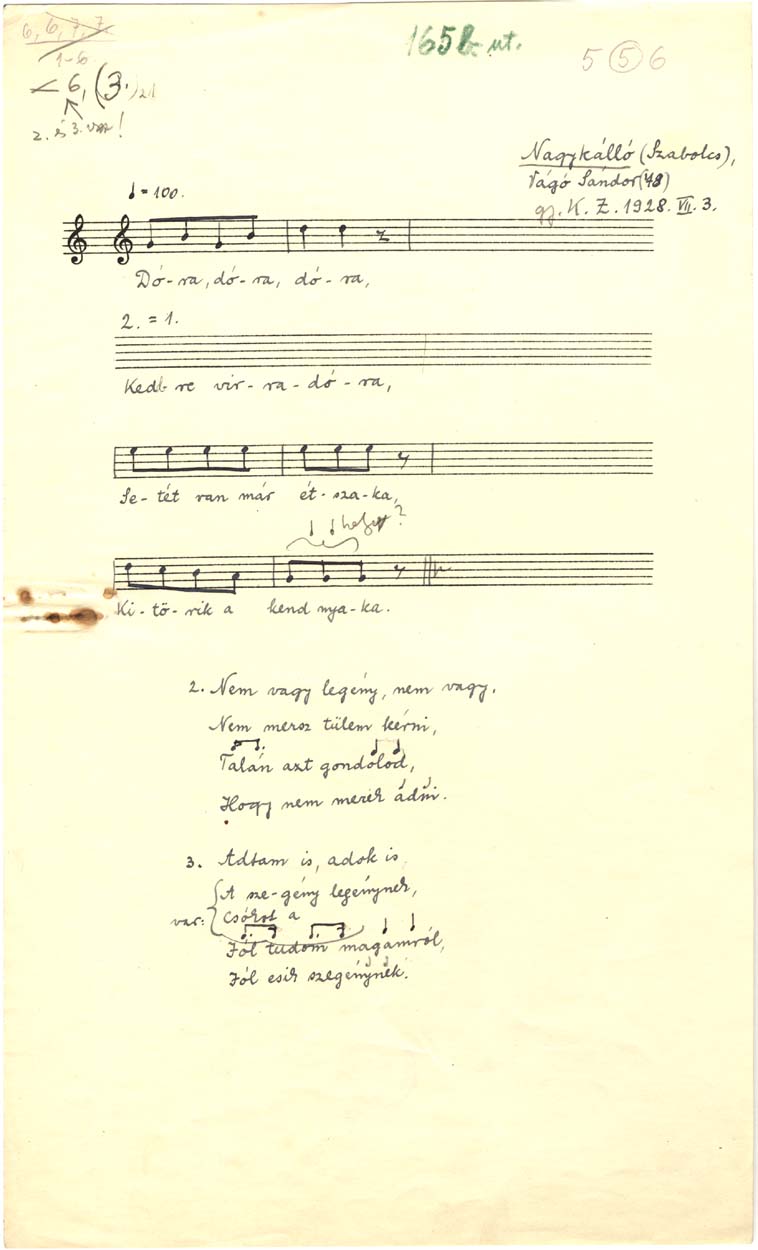 6, 6, 7, 7.
1-6
< 6, (3.)
2. és 3. vsz!
165 B ut.
5 (5) 6
Nagykálló (Szabolcs),
Vágó Sándor (48)
gy. K. Z. 1928. VII. 3.
♩ = 100.
Dó-ra, dó-ra, dó-ra,
2. = 1.
Kedbre vir-ra-dó-ra,
Se-tét van már ét-sza-ka,
helyett?
Ki-tö-rik a kend nya-ka.
2. Nem vagy legény, nem vagy.
Nem mersz tülem kérni,
Talán azt gondolod,
Hogy nem merek ádni.
3. Adtam is, adok is
A sze-gény legénynek,
var: Csókot a
Jól tudom magamról,
Jól esik szegénynek.